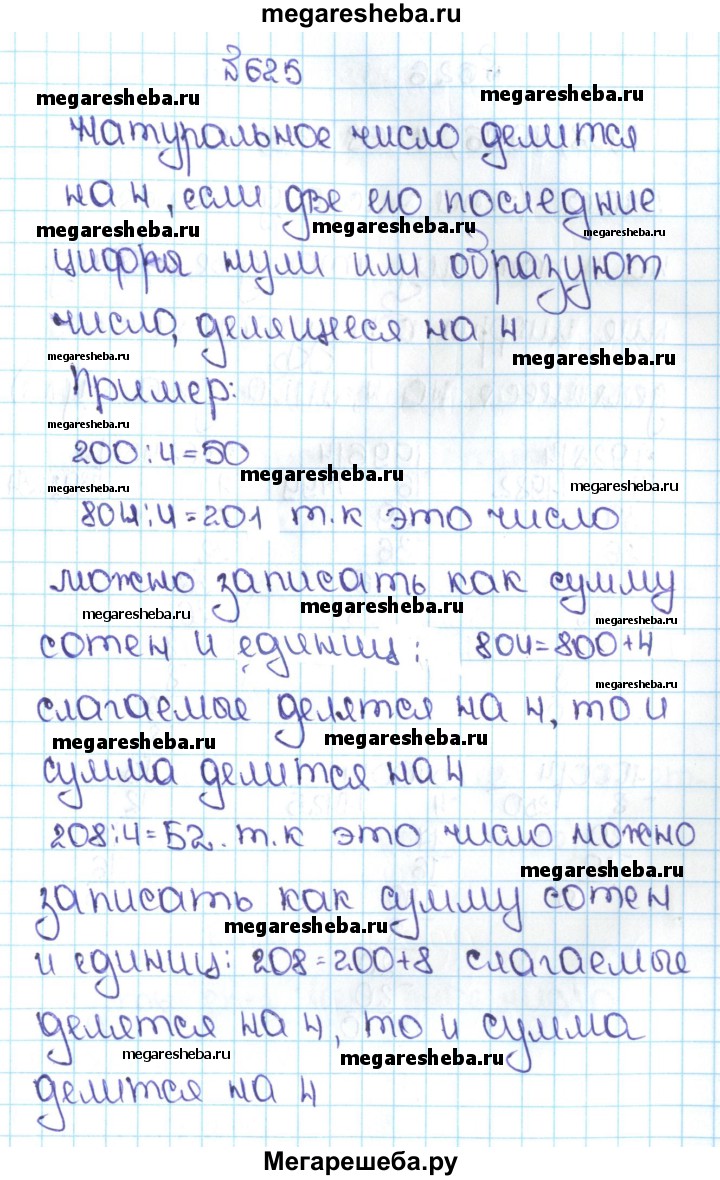 megaresheba.ru
№625
megaresheba.ru megaresheba.ru
Натуральное число делится
на 4, если две его последние
megaresheba.ru megaresheba.ru megaresheba.ru
цифры нули или образуют
число, делящееся на 4
megaresheba.ru megaresheba.ru
Пример:
megaresheba.ru
200:4=50
megaresheba.ru
megaresheba.ru megaresheba.ru
804:4=201 т.к это число
можно записать как сумму
megaresheba.ru megaresheba.ru megaresheba.ru
сотен и единиц: 804=800+4
megaresheba.ru
слагаемые делятся на 4, то и
megaresheba.ru megaresheba.ru
сумма делится на 4
208:4=52. т.к это число можно
megaresheba.ru
записать как сумму сотен
megaresheba.ru
и единиц: 208=200+8 слагаемые
делятся на 4, то и сумма
megaresheba.ru megaresheba.ru
делится на 4
Мегарешеба.ру